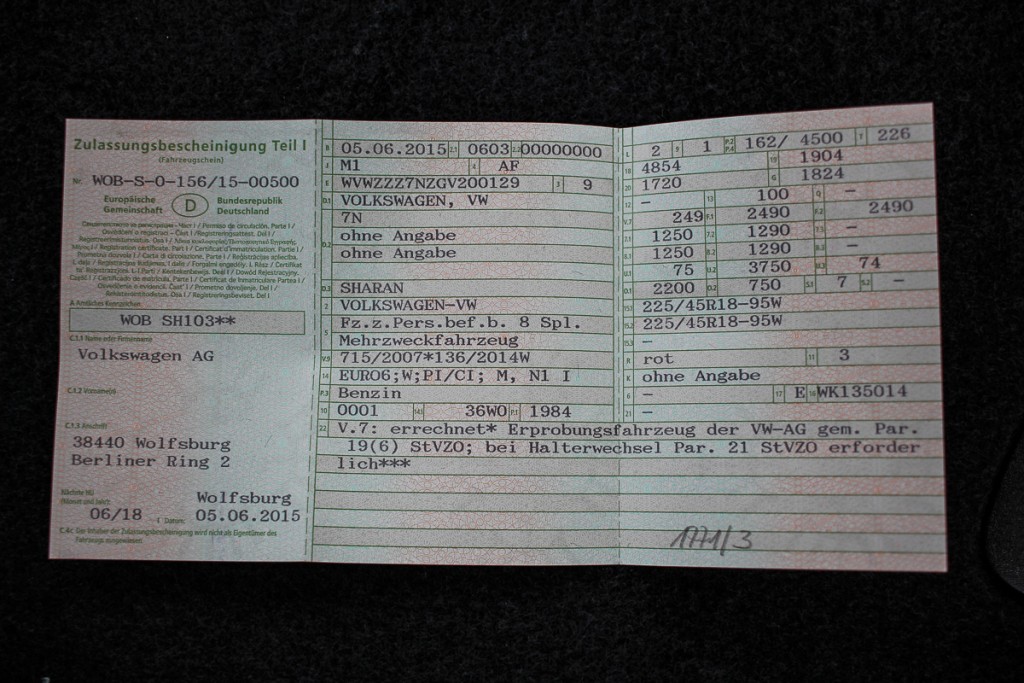 Zulassungsbescheinigung Teil I
(Fahrzeugschein)
Nr. WOB-S-O-156/15-00500
Europäische Gemeinschaft
D
Bundesrepublik Deutschland
A Amtliches Kennzeichen
WOB SH103**
C.1.1 Name oder Firmenname
Volkswagen AG
C.1.2 Vorname(n)
C.1.3 Anschrift
38440 Wolfsburg
Berliner Ring 2
Nächste HU
(Monat und Jahr)
06/18
Wolfsburg
I Datum: 05.06.2015
C.4c Der Inhaber der Zulassungsbescheinigung wird nicht als Eigentümer des
Fahrzeugs ausgewiesen.
B 05.06.2015 2.1 0603 2.2 00000000
J M1 4 AF
E WVWZZZ7NZGV200129 3 9
D.1 VOLKSWAGEN, VW
7N
D.2 ohne Angabe
ohne Angabe
D.3 SHARAN
2 VOLKSWAGEN-VW
5 Fz.z.Pers.bef.b. 8 Spl.
Mehrzweckfahrzeug
V.9 715/2007*136/2014W
14 EURO6;W;PI/CI; M, N1 I
P.3 Benzin
10 0001 14.1 36W0 P.1 1984
L 2 9 1 P.2 P.4 162/ 4500 T 226
18 4854 19 1904
20 1720 G 1824
12 - 13 100 Q -
V.7 249 F.1 2490 F.2 2490
7.1 1250 7.2 1290 7.3 -
8.1 1250 8.2 1290 8.3 -
U.1 75 U.2 3750 U.3 74
O.1 2200 O.2 750 S.1 7 S.2 -
15.1 225/45R18-95W
15.2 225/45R18-95W
15.3 -
R rot 11 3
K ohne Angabe
6 - 17 E 16 WK135014
21 -
22 V.7: errechnet* Erprobungsfahrzeug der VW-AG gem. Par.
19(6) StVZO; bei Halterwechsel Par. 21 StVZO erforder
lich***
1771/3